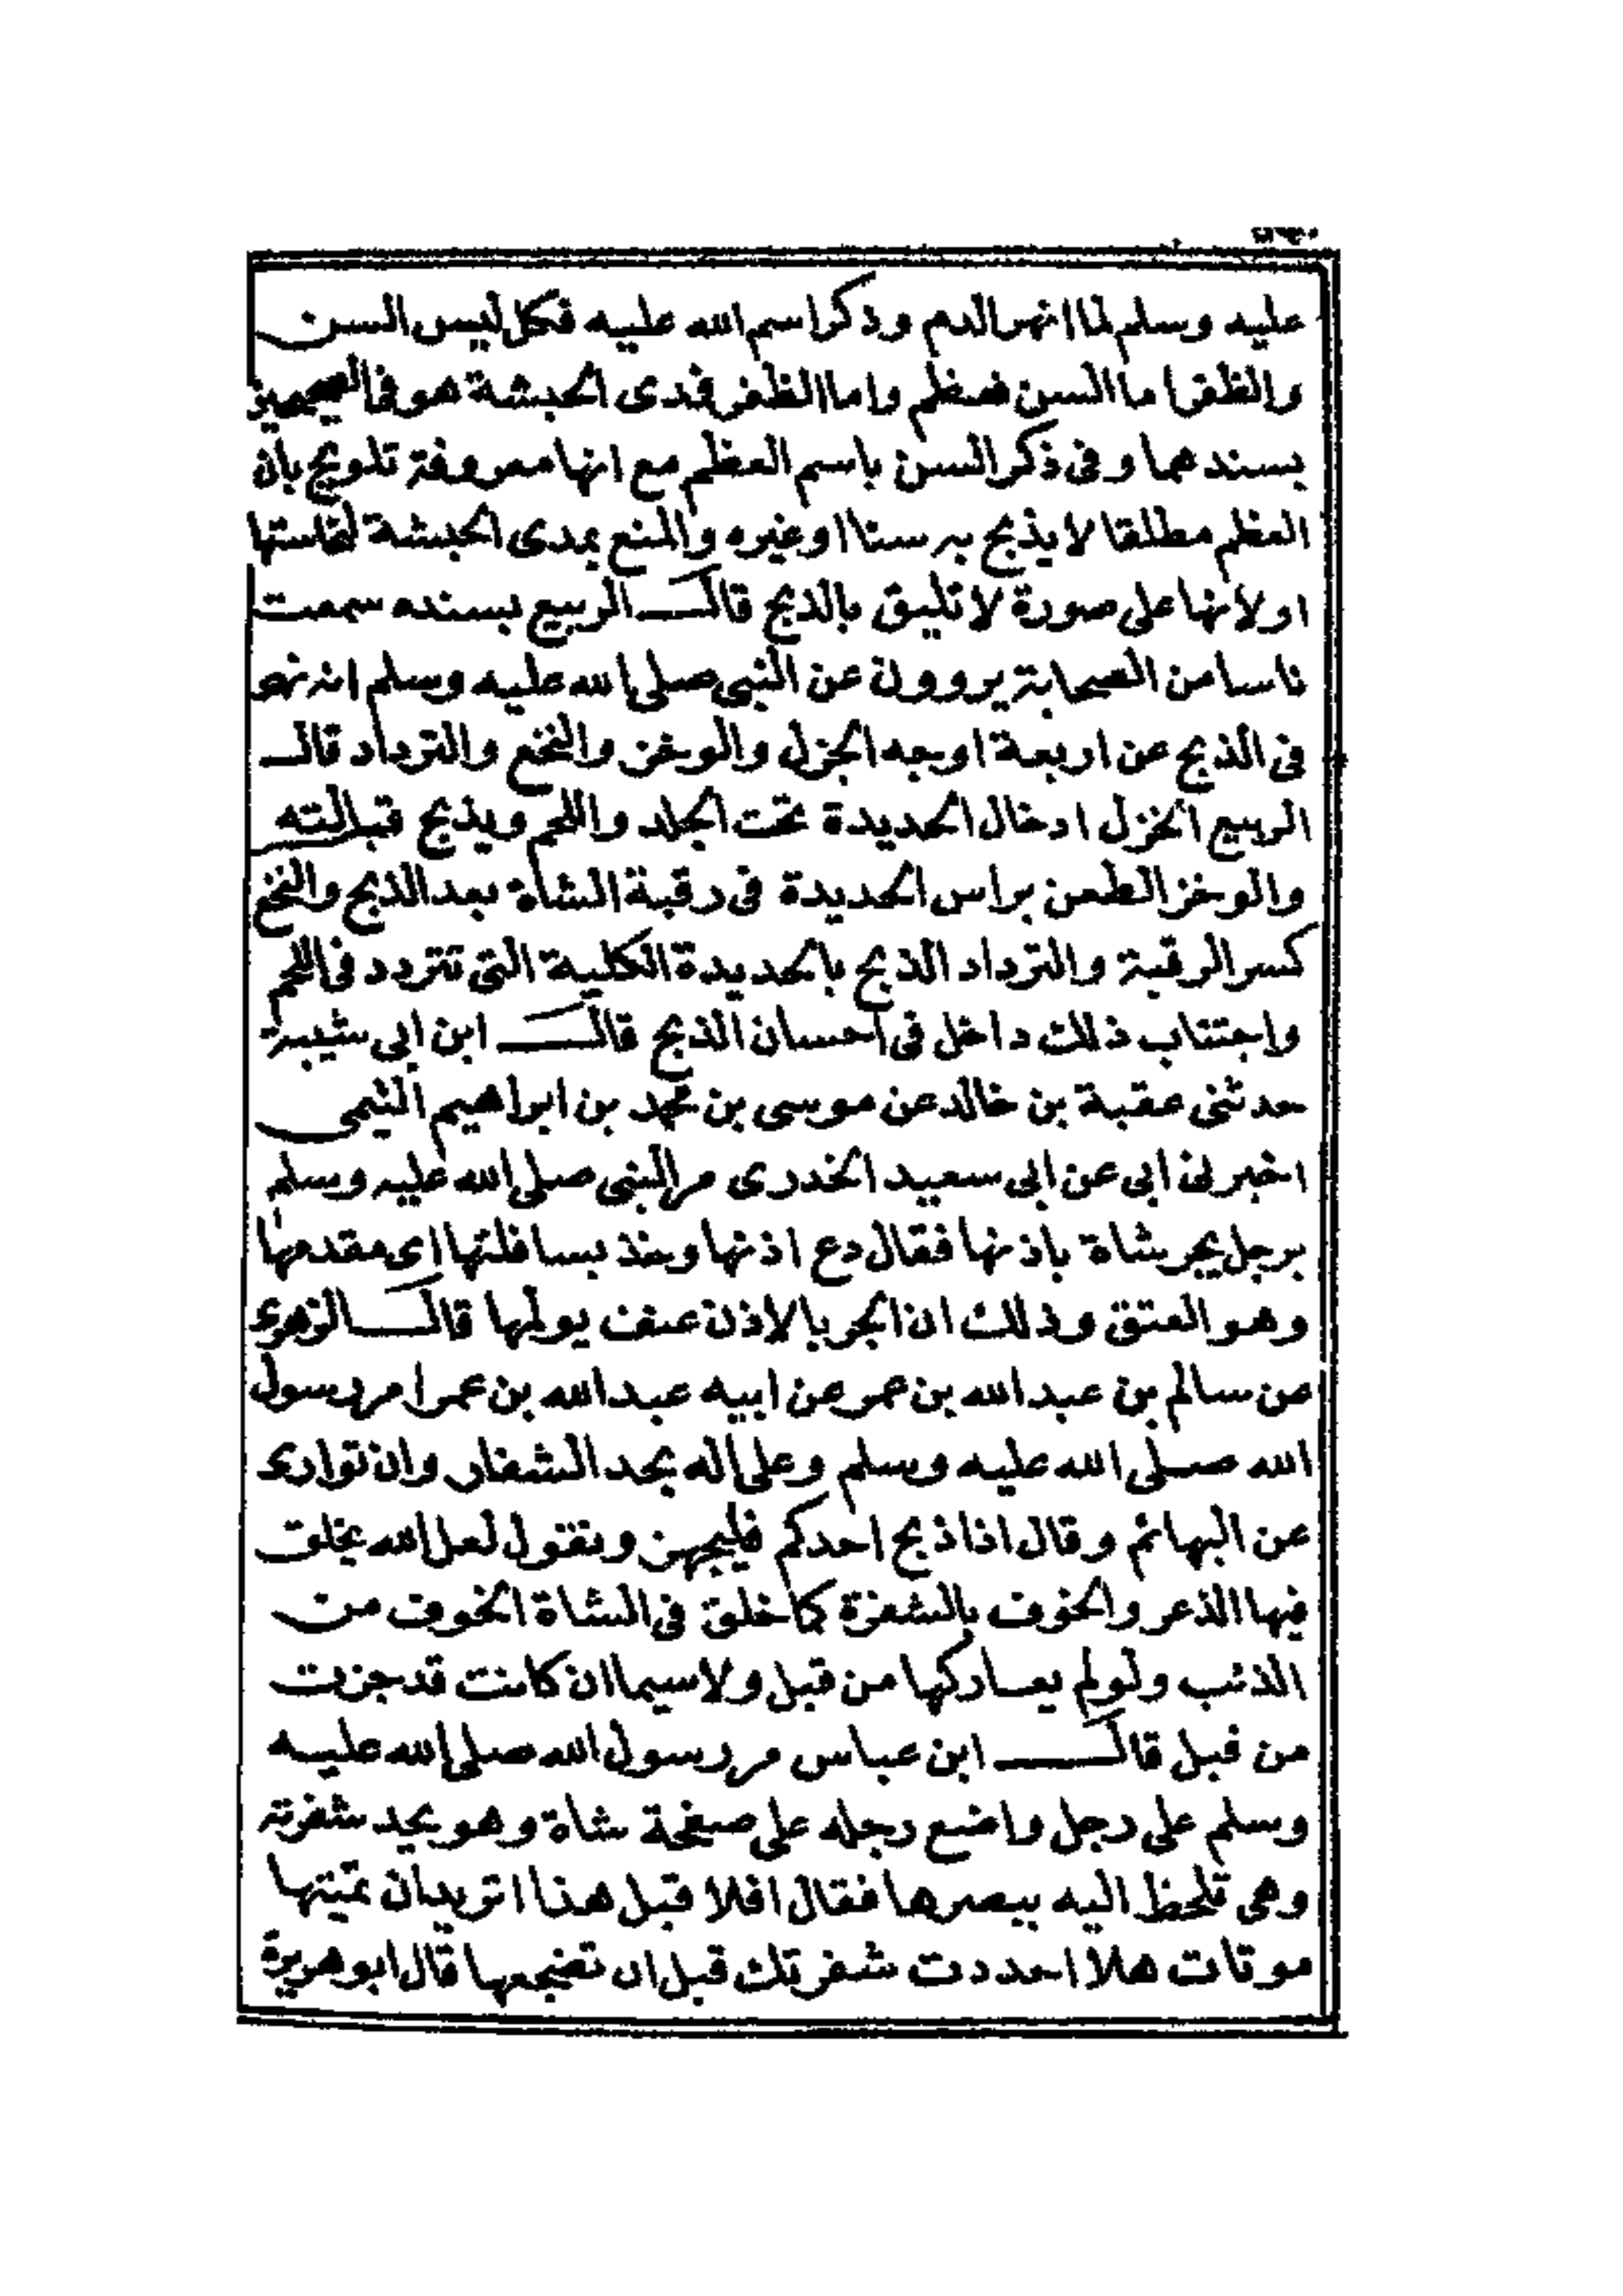 عليه وسلم لما انهر الدم وذكر اسم الله عليه فكل ليس السن
والظفر اما السن فعظم واما الظفر فمدى الحبشة هو في الصحيحين
بسندهما وفي ذكر السن باسم العظم مع انها معروفة تلويح بان
العظم مطلقا لا يذبح به سنا او غيره والمنع بمدى الحبشة لنجاستها
او لانها على صورة لا تليق بالذبح قال الربيع بسنده سمعت
ناسا من الصحابة يروون عن النبي صلى الله عليه وسلم انه نهى
في الذبح عن اربعة اوجه الخزل والوخز والنخع والترداد قال
الربيع الخزل ادخال الحديدة تحت الجلد واللحم ويذبح قبالته
والوخز الطعن براس الحديدة في رقبة الشاة بعد الذبح والنخع
كسر الرقبة والترداد الذبح بالحديدة الكليلة التي تتردد في اللحم
واجتناب ذلك داخل في احسان الذبح قال ابن ابي شيبة
حدثنى عقبة بن خالد عن موسى بن محمد بن ابراهيم التيمي
اخبرني ابي عن ابي سعيد الخدرى مر النبي صلى الله عليه وسلم
برجل يجر شاة باذنها فقال دع اذنها وخذ بسافلتها اى مقدمها
وهو العنق وذلك ان الجر بالاذن عنف يولمها قال الزهرى
عن سالم بن عبد الله بن عمر عن ابيه عبد الله بن عمر امر رسول
الله صلى الله عليه وسلم وعلى اله بحد الشفار وان توارى
عن البهائم وقال اذا ذبح احدكم فليجهز ونقول لعل الله يخلق
فيها الذعر والخوف بالشفرة كما خلق في الشاة الخوف من
الذئب ولو لم يعاركها من قبل ولا سيما ان كانت قد جزت
من قبل قال ابن عباس مر رسول الله صلى الله عليه
وسلم على رجل واضع رجله على صفحة شاة وهو يحد شفرته
وهي تلحظ اليه ببصرها فقال افلا قبل هذا اتريد ان تميتها
موتات هلا احددت شفرتك قبل ان تضجعها قال ابو هريرة